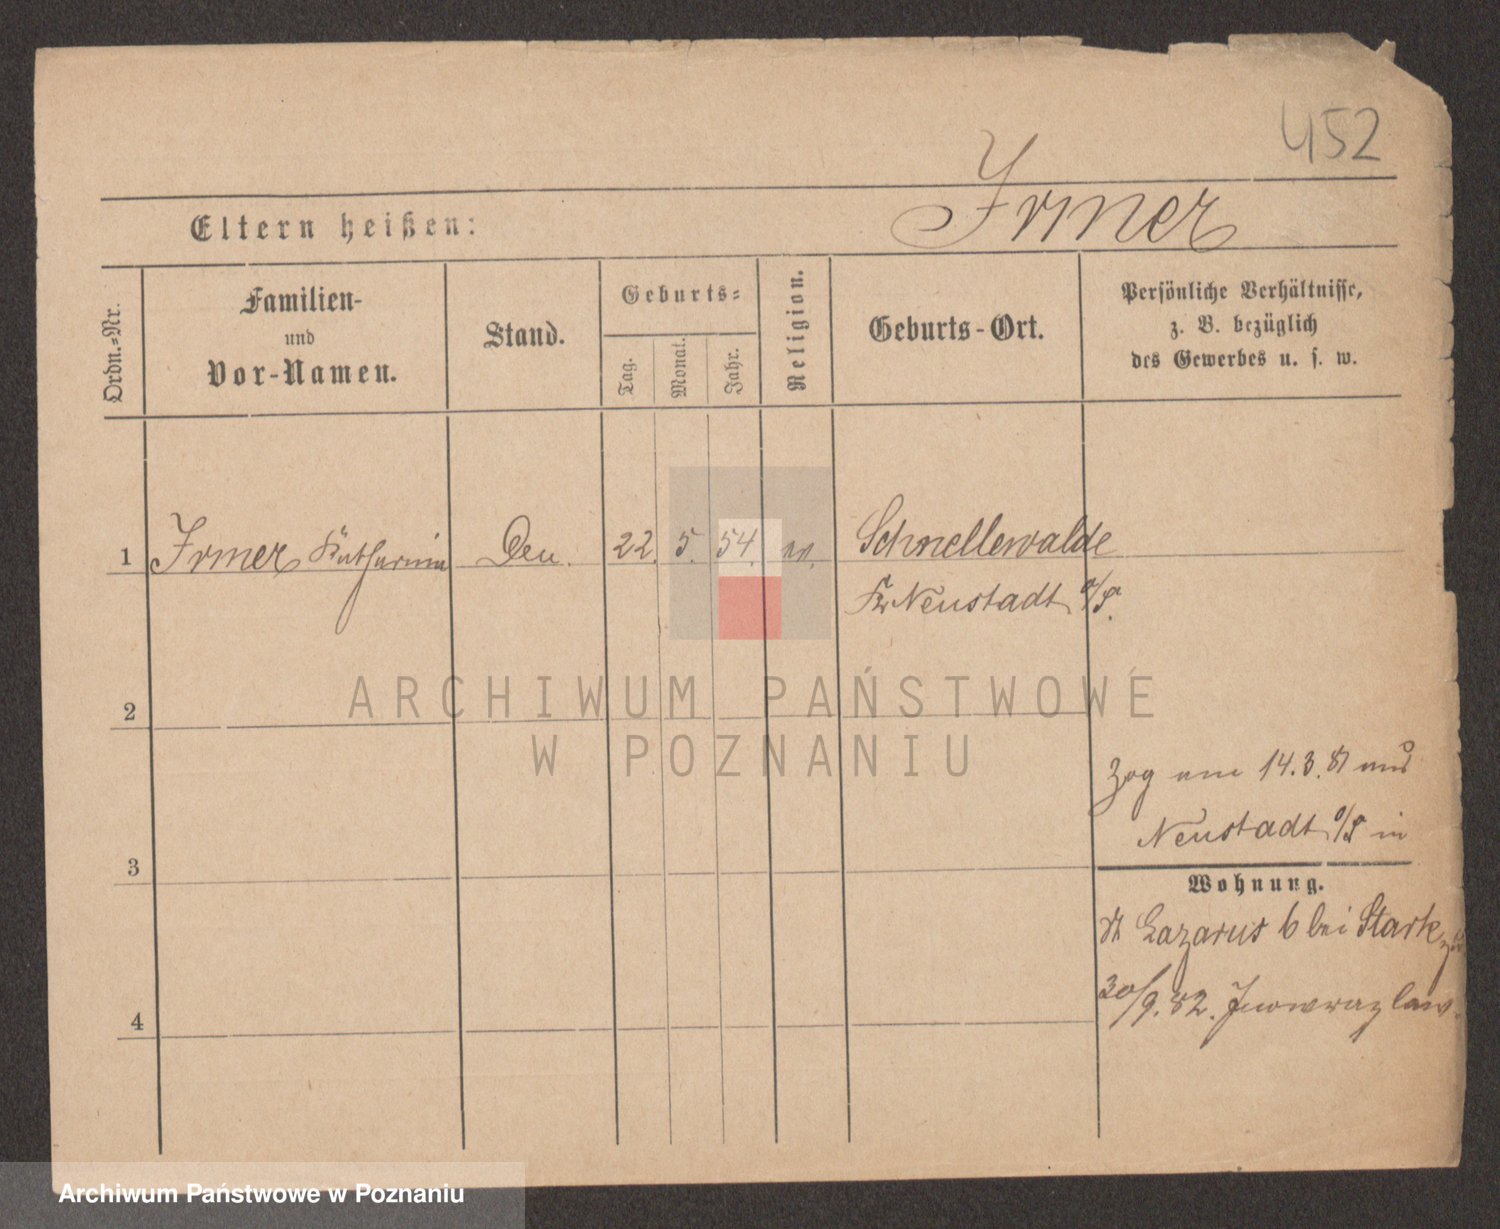 452
Irmer
Eltern heißen:
Ordn.-Nr.
Familien-
und
Vor-Namen.
Stand.
Geburts-
Tag.
Monat.
Jahr.
Religion.
Geburts-Ort.
Persönliche Verhältnisse,
z. B. bezüglich
des Gewerbes u. s. w.
1 Irmer Katharina 22. 5. 54. Schnellewalde
Kr Neustadt o/S.
ARCHIWUM PAŃSTWOWE
W POZNANIU
2
3
4
Zog am 14.3. 81 aus
Neustadt o/S in
Wohnung.
St Lazarus 6 bei Stark
30/9. 82. Inowrazlaw.
Archiwum Państwowe w Poznaniu